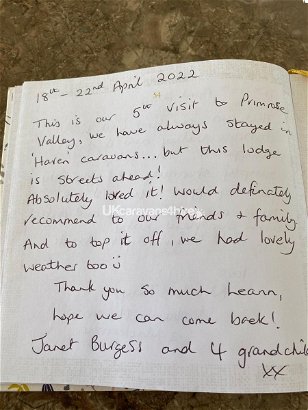 18th - 22nd April 2022
This is our 5th visit to Primrose
Valley, we have always stayed in
Haven caravans... but this lodge
is streets ahead!
Absolutely loved it! Would definately
recommend to our friends & family
And to top it off, we had lovely
weather too
Thank you so much Leann,
hope we can come back!
Janet Burgess and 4 grandchild
xx